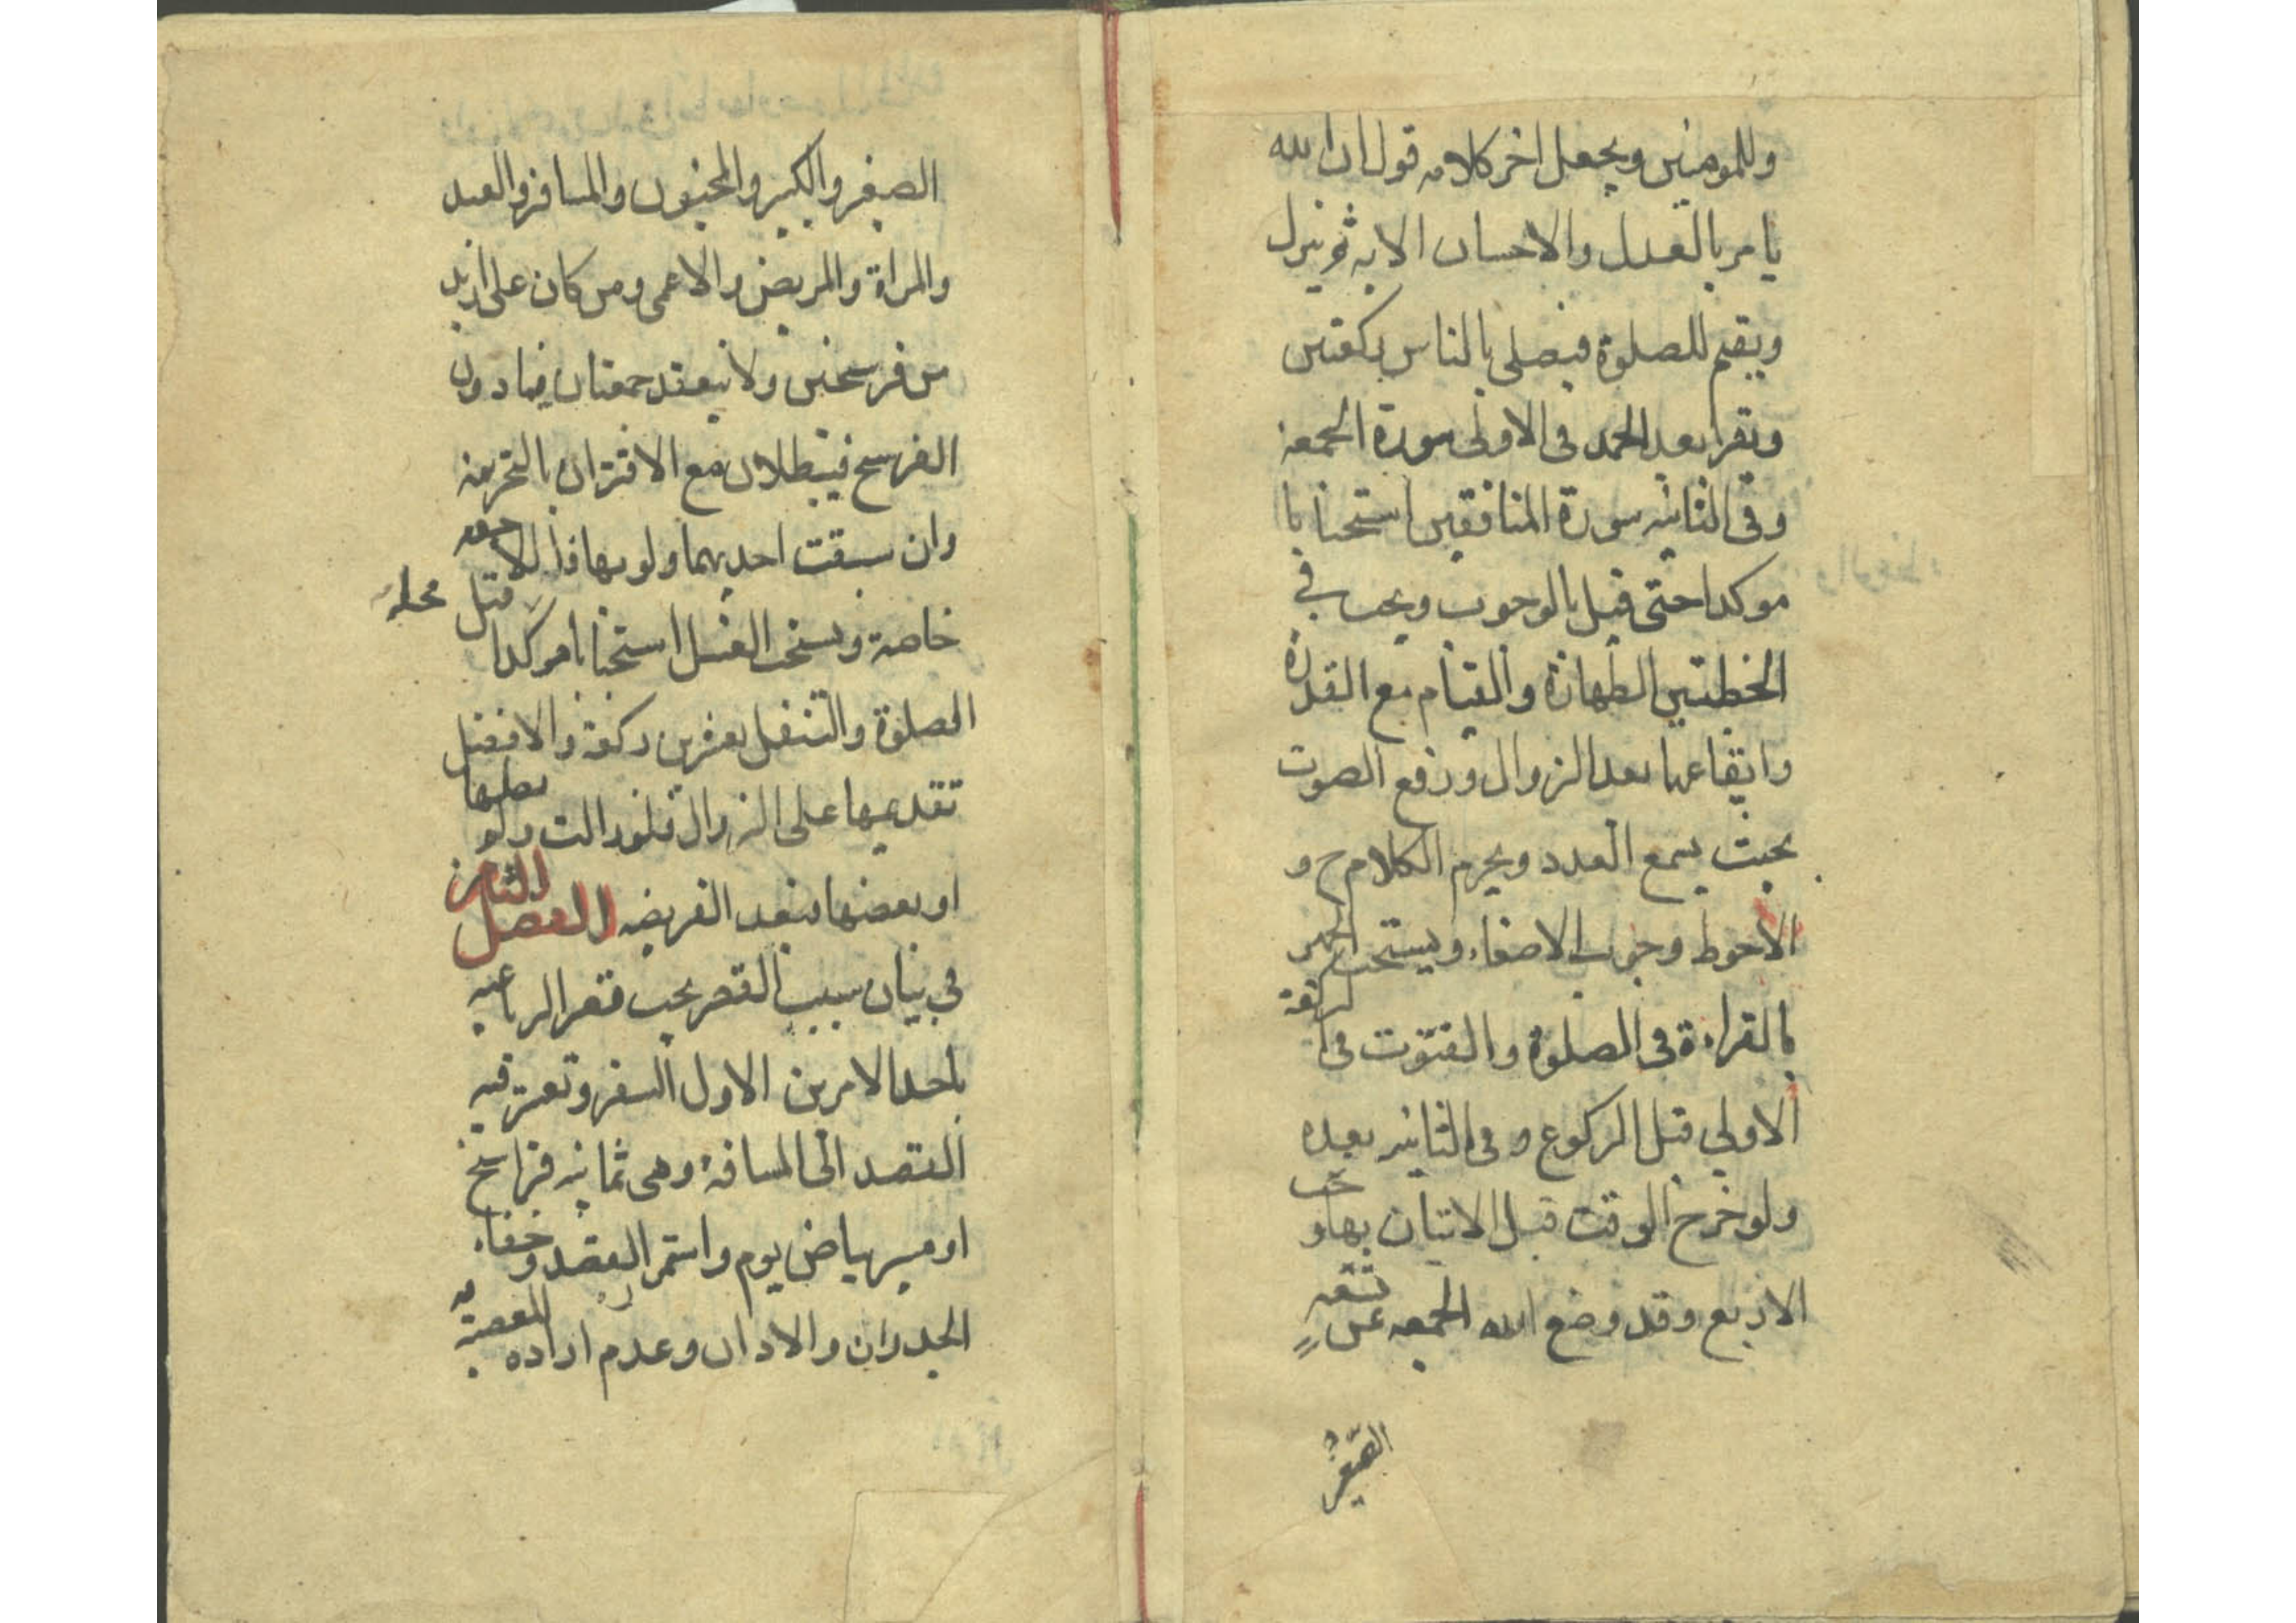 وللمومنين ويجعل اخر كلامه قول ان الله
يامر بالعدل والاحسان الايه ثم ينزل
ويقيم للصلوة فيصلي بالناس ركعتين
ويقرا بعد الحمد في الاولى سورة الجمعه
وفي الثانيه سورة المنافقين استحبابا
موكدا حتى قيل بالوجوب ويجب في
الخطبتين الطهارة والقيام مع القدرة
وايقاعهما بعد الزوال ورفع الصوت
بحيث يسمع العدد ويحرم الكلام ح و
الاحوط وجوب الاصغاء ويستحب الجهر
بالقراءة في الصلوة والقنوت في الركعة
الاولي قبل الركوع وفي الثانيه بعده
ولو خرج الوقت قبل الاتيان بها وجب
الاربع وقد وضع الله الجمعه عن تسعه
الصغير
الصغير والكبير والمجنون والمسافر والعبد
والمراة والمريض والاعمى ومن كان على ازيد
من فرسخين ولا ينعقد جمعتان فيما دون
الفرسخ فيبطلان مع الاقتران بالتحريمة
وان سبقت احديهما ولو بها فاللاحقه
خاصة ويستحب الغسل استحبابا موكدا قبل
الصلوة والتنفل بعشرين ركعة والافضل
تقديمها على الزوال فلو زالت ولو يصليها
او بعضها فبعد الفريضه الفصل الثامن
في بيان سبب القصر يجب قصر الرباعيه
باحد الامرين الاول السفر وتعتبر فيه
القصد الى المسافة وهي ثمانيه فراسخ
او مسير بياض يوم واستمر القصد وخفاء
الجدران والاذان وعدم اراده المعصية به